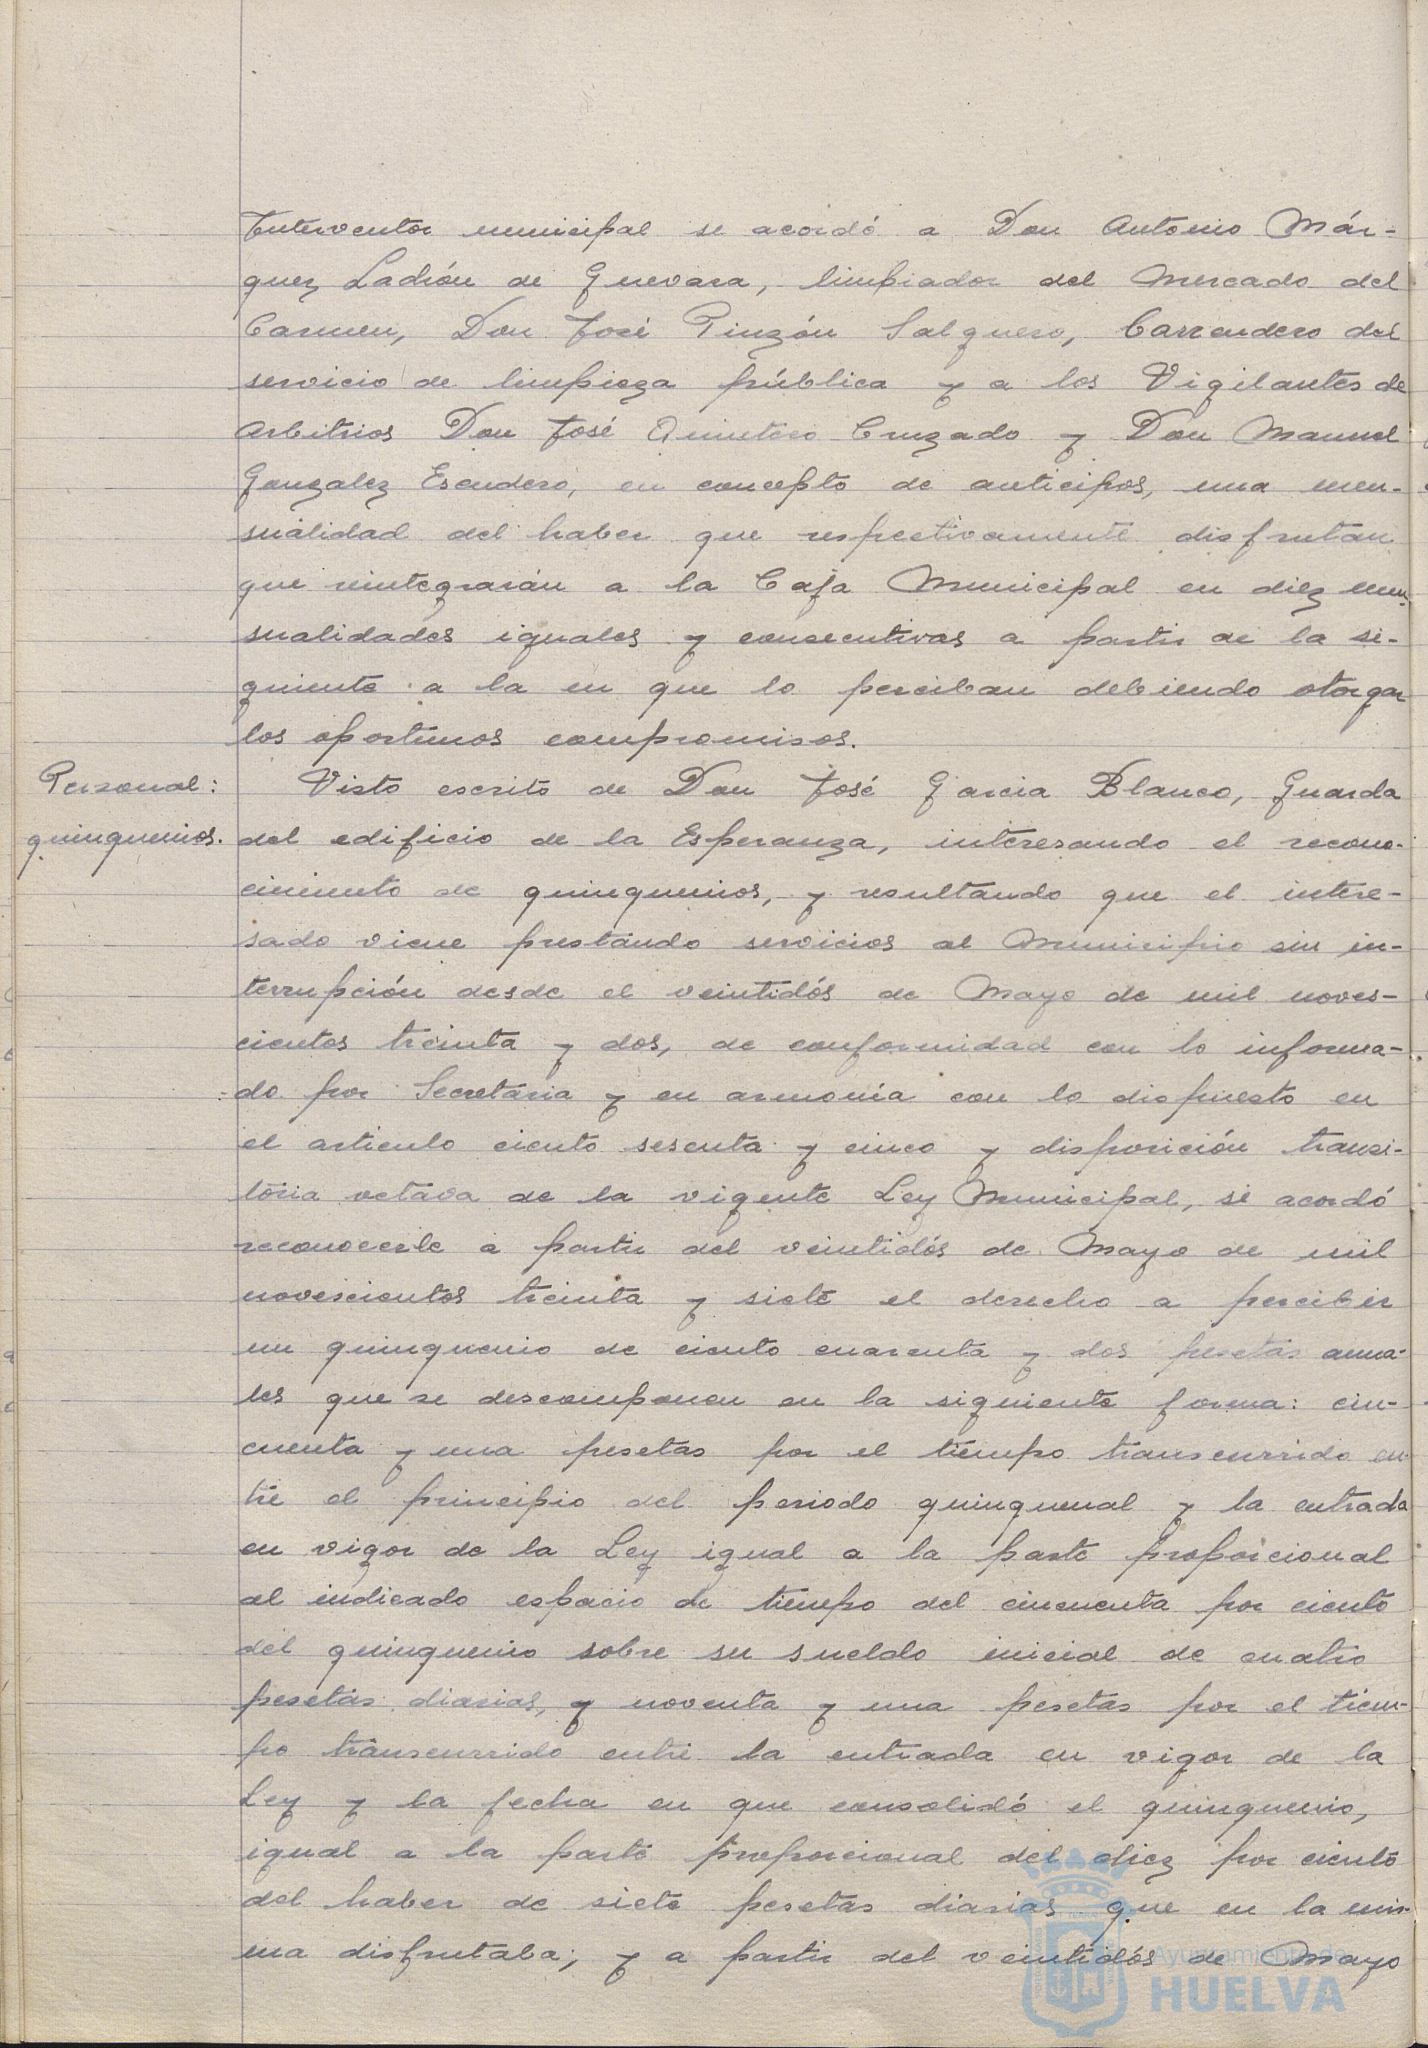 Interventor municipal se acordó a Don Antonio Már-
quez Ladrón de Guevara, limpiador del Mercado del
Carmen, Don José Pinzón Salguero, barrendero del
servicio de limpieza pública y a los Vigilantes de
Arbitrios Don José Quintero Cruzado y Don Manuel
Gonzalez Escudero, en concepto de anticipos, una men-
sualidad del haber que respectivamente disfrutan
que reintegrarán a la Caja Municipal en diez men-
sualidades iguales y consecutivas a partir de la si-
guiente a la en que lo perciban debiendo otorgar
los oportunos compromisos.
Personal:
quinquenios.
Visto escrito de Don José Garcia Blanco, Guarda
del edificio de la Esperanza, interesando el recono-
cimiento de quinquenios, y resultando que el intere-
sado viene prestando servicios al Municipio sin in-
terrupción desde el veintidós de Mayo de mil noves-
cientos treinta y dos, de conformidad con lo informa-
do por Secretaria y en armonía con lo dispuesto en
el articulo ciento sesenta y cinco y disposición transi-
toria octava de la vigente Ley Municipal, se acordó
reconocerle a partir del veintidós de Mayo de mil
novescientos treinta y siete el derecho a percibir
un quinquenio de ciento cuarenta y dos pesetas anua-
les que se descomponen en la siguiente forma: cin-
cuenta y una pesetas por el tiempo transcurrido en-
tre el principio del periodo quinquenal y la entrada
en vigor de la Ley igual a la parte proporcional
al indicado espacio de tiempo del cincuenta por ciento
del quinquenio sobre su sueldo inicial de cuatro
pesetas diarias, y noventa y una pesetas por el tiem-
po transcurrido entre la entrada en vigor de la
Ley y la fecha en que consolidó el quinquenio,
igual a la parte proporcional del diez por ciento
del haber de siete pesetas diarias que en la mis-
ma disfrutaba; y a partir del veintidós de Mayo
Ayuntamiento de
HUELVA